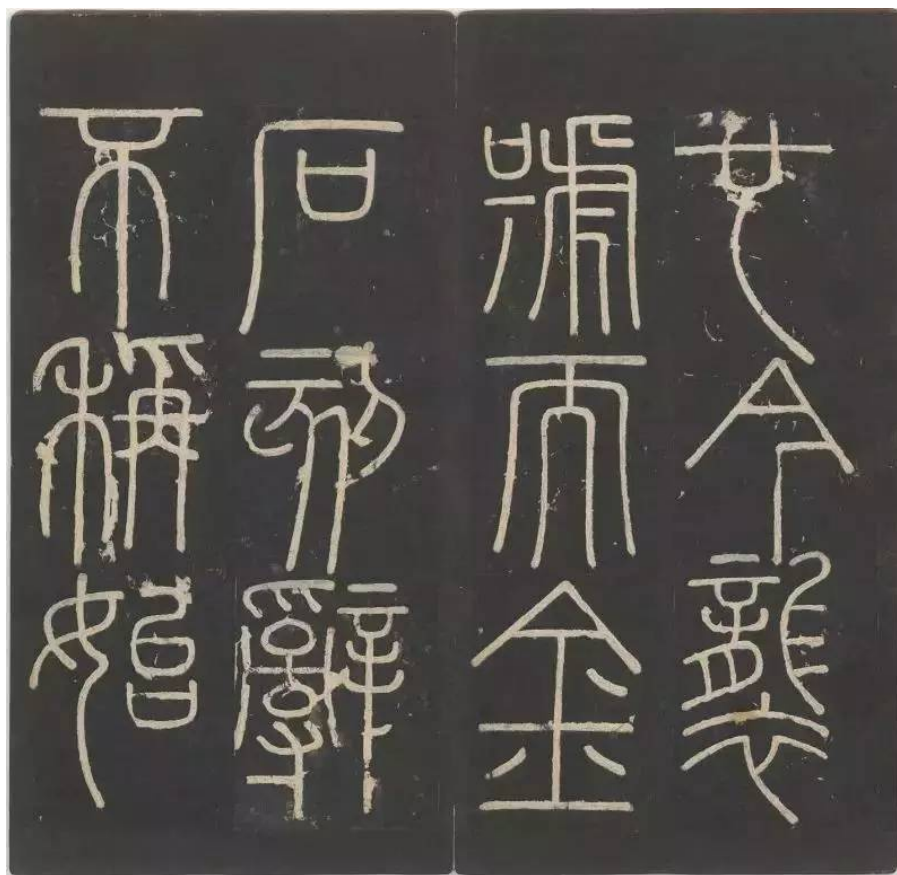 也今襲
號而金
石刻辭
不稱始